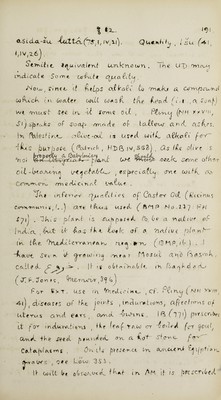 § 82
191
asida-šu luttâ (78,1,IV,31). Quantity, ½ šu (41,
1,IV,26).
Semitic equivalent unknown. The UD may
indicate some white quality.
Now, since it helps alkali to make a compound
which in water will wash the head (i.e. a soap)
we must see in it some oil. Pliny (NH
51) speaks of soap made of tallow and ashes.
In Palestine olive-oil is used with alkali for
this purpose (Post, HDB IV, 558). As the olive is
not properly a Babylonian plant we seek some other
oil-bearing vegetable, especially one with as
common medicinal value.
The inferior qualities of Castor Oil (Ricinus
communis, L.) are thus used (BMP. No. 237: HH
571). This plant is supposed to be a native of
India but it has the look of a native plant
in the Mediterranean region (BMP, ib.). I
have seen it growing near Mosul and Basrah,
called. It is obtainable in Baghdad
(J.F. Jones, Memoirs, 346)
For Ext. use in Medicine, cf. Pliny (NH
41), diseases of the joints, indurations, affections of
uterus and ears, and burns. IB (771) prescribes
it for indurations, the leaf raw or boiled for gout,
and the seed pounded on a hot stone for
cataplasms. On its presence in ancient Egyptian
graves, see Löw 353.
It will be observed that in AM it is prescribed